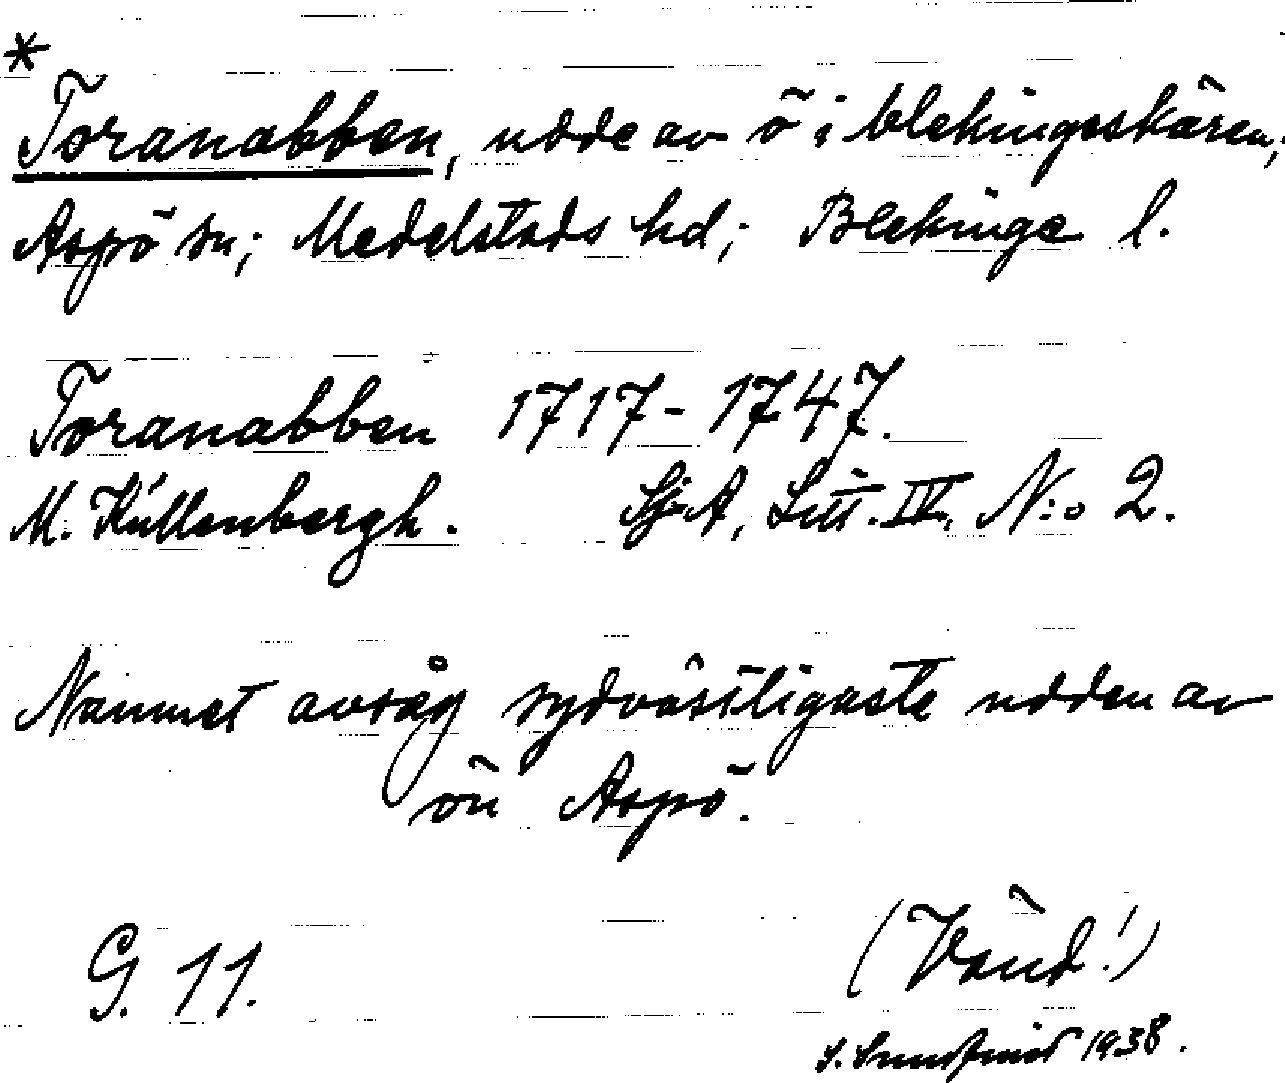 *
Toranabben, udde av ö i blekingeskären,
Aspö sn; Medelstads hd; Blekinge l.
Toranabben 1717-1747.
M. Küllenbergh. SjA, Litt. IV, N:o 2.
Namnet avsåg sydvästligaste udden av
ön Aspö.
G. 11. (Vänd!)
S. 1938.